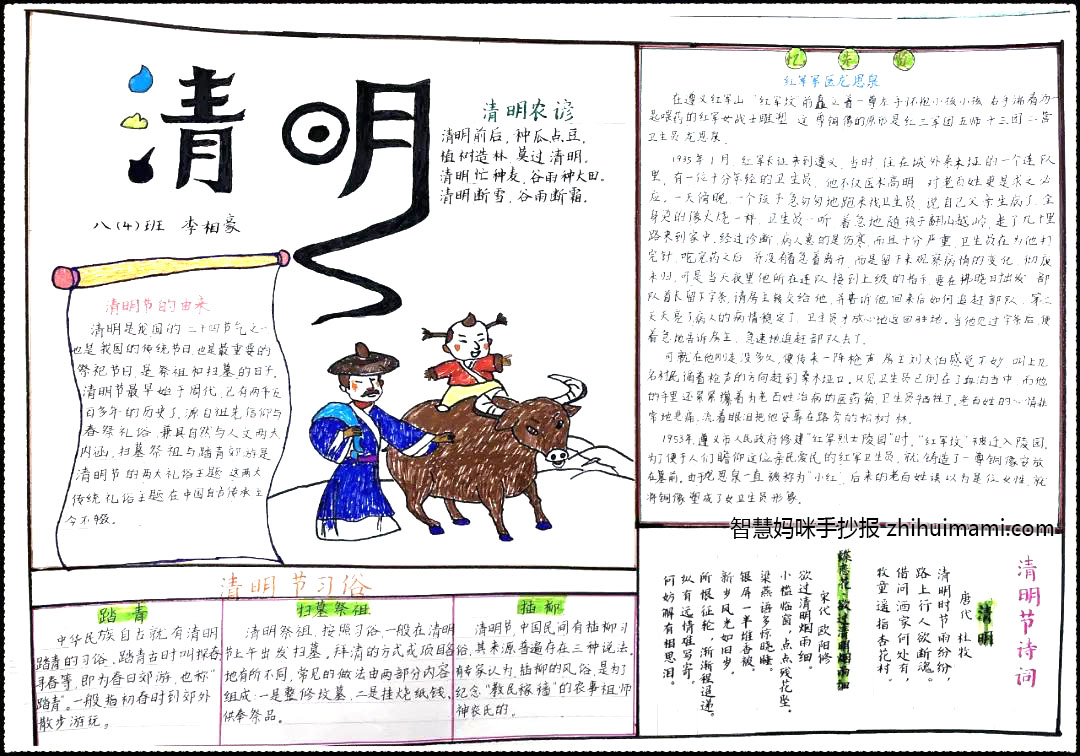 清明
八(4)班 李相豪
清明农谚
清明前后，种瓜点豆，
植树造林 莫过清明。
清明忙种麦，谷雨种大田。
清明断雪、谷雨断霜。
清明节的由来
清明是我国的二十四节气之一
也是我国的传统节日，也是最重要的
祭祀节日，是祭祖和扫墓的日子。
清明节最早始于周代，已有两千五
百多年的历史了，源自祖先信仰与
春祭礼俗，兼具自然与人文两大
内涵，扫墓祭祖与踏青郊游是
清明节的两大礼俗主题，这两大
传统礼俗主题在中国自古传承至
今不辍。
忆先烈
红军军医龙思泉
在遵义红军山"红军坟"前矗立着一尊左手怀抱小孩
是喂药的红军女战士雕塑 这尊铜像的原形是红三军团五师十三团二营
卫生员龙思泉。
1935年1月，红军长征来到遵义，当时住在城外桑木垭的一个连队
里，有一位十分年轻的卫生员，他不仅医术高明 对老百姓更是求之必
应。一天傍晚，一个孩子急匆匆地跑来找卫生员，说自己父亲生病了，全
身烫的像火烧一样，卫生员一听 着急地随孩子翻山越岭，走了几十里
路来到家中，经过诊断，病人患的是伤寒，而且十分严重，卫生员在为他打
完针，吃完药之后 并没有着急着离开，而是留下来观察病情的变化，彻夜
未归，可是当天夜里他所在连队接到上级的指示，要在拂晓时出发 部
队首长留下字条，请房主转交给他，并告诉他回来后如何追赶部队。第二
天天亮了病人的病情稳定了，卫生员才放心地返回驻地。当他见过字条后，便
着急地告诉房主，急速地追赶部队去了。
可就在他刚走没多久，便传来一阵枪声 房主刘大伯感觉不妙 叫上几
名村民循着枪声的方向赶到桑木垭口。只见卫生员已倒在了血泊当中，而他
的手里还紧紧攥着为老百姓治病的医药箱，卫生员牺牲了。老百姓的心情非
常地悲痛，流着眼泪把他安葬在路旁的松树林。
1953年，遵义市人民政府修建"红军烈士陵园"时，"红军坟"被迁入陵园，
为了便于人们瞻仰这位亲民爱民的红军卫生员，就铸造了一尊铜像安放
在墓前。由于龙思泉一直被称为"小红"，后来的老百姓误以为是位女性，就
将铜像塑成了女卫生员形象。
智慧妈咪手抄报 zhihuimami.com
清明节习俗
踏青
中华民族自古就有清明
踏青的习俗，踏青古时叫探春
寻春等，即为春日郊游，也称"
踏青"。一般指初春时到郊外
散步游玩。
扫墓祭祖
清明祭祖，按照习俗，一般在清明
节上午出发扫墓，拜清的方式或项目各
地有所不同，常见的做法由两部分内容
组成：一是整修坟墓，二是挂烧纸钱、
供奉祭品。
插柳
清明节，中国民间有插柳习
俗，其来源普遍存在三种说法。
有专家认为，插柳的风俗，是为了
纪念"教民稼穑"的农事祖师
神农氏的。
清明节诗词
清明
唐代 杜牧
清明时节雨纷纷，
路上行人欲断魂。
借问酒家何处有，
牧童遥指杏花村。
蝶恋花·欲过清明烟雨细
宋代 欧阳修
欲过清明烟雨细。
小槛临窗，点点残花坠。
梁燕语多惊晓睡，
银屏一半堆香被。
新岁风光如旧岁。
所恨征轮，渐渐程迢递。
纵有远情难写寄，
何妨解有相思泪。